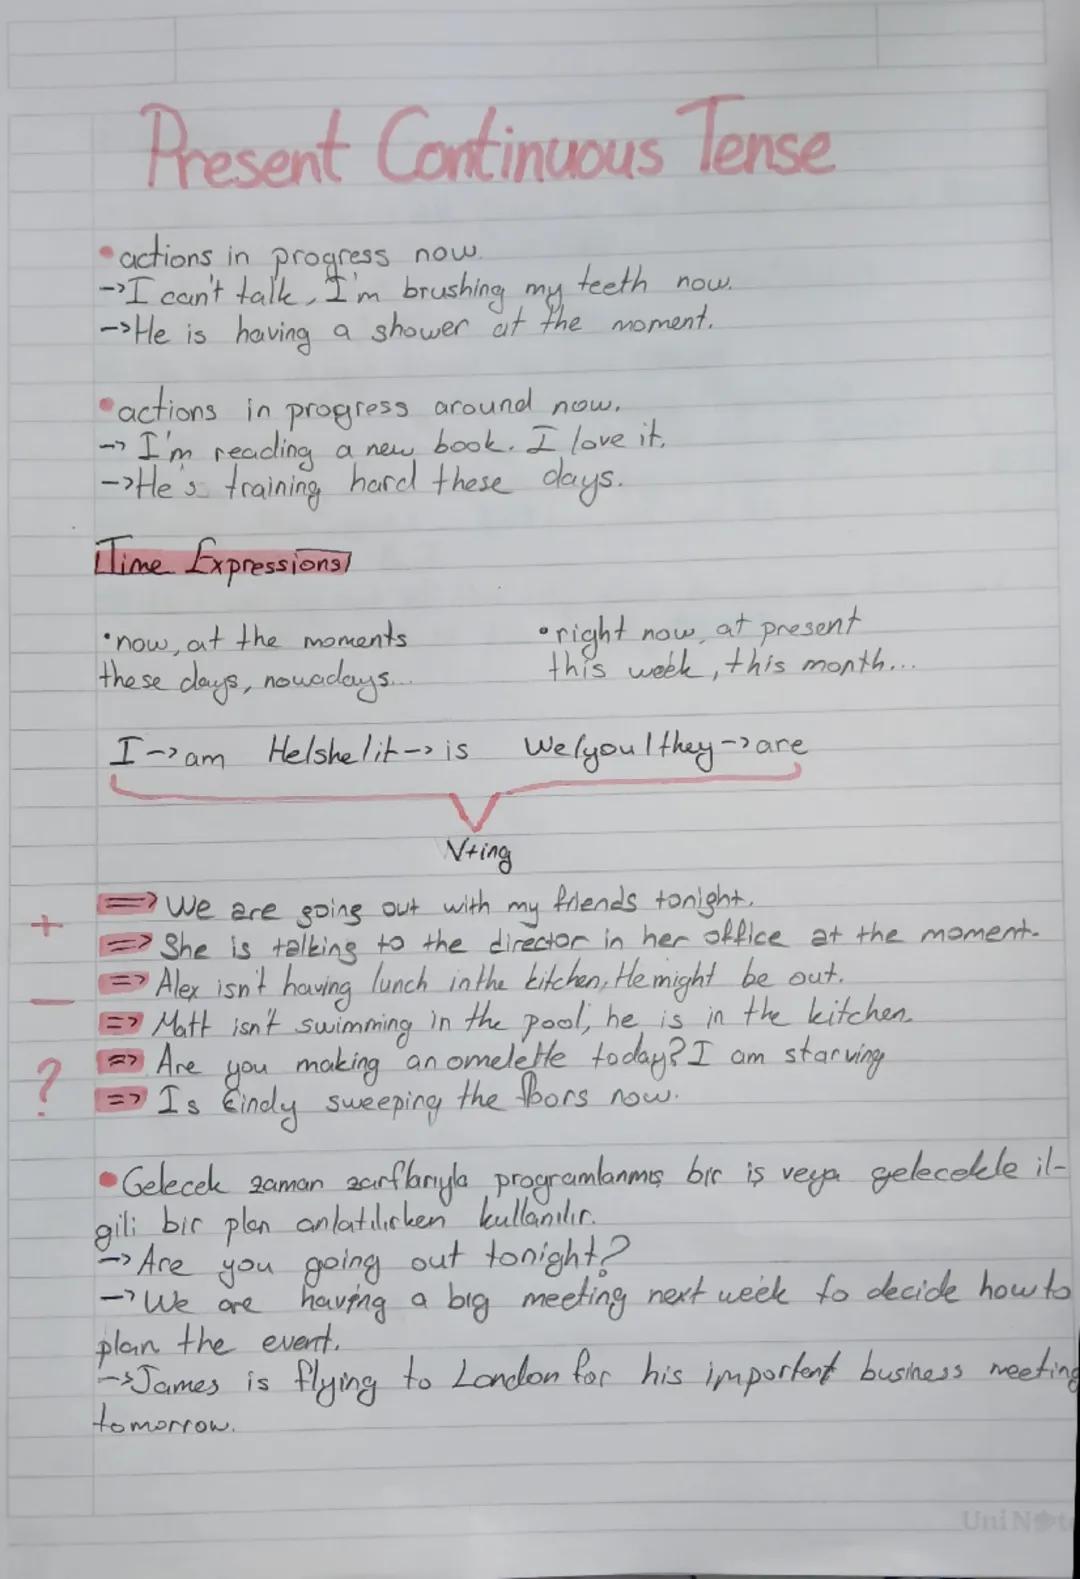 Present Continuous Tense
• actions in progress now.
-> I can't talk, I'm brushing my teeth now.
-> He is having a shower at the moment.
• actions in progress around now.
-> I'm reading a new book. I love it.
-> He's training hard these days.
Time Expressions
• now, at the moments
these days, nowadays...
• right now, at present
this week, this month...
I -> am He/she/it -> is We/you/they -> are
V+ing
+
=> We are going out with my friends tonight.
=> She is talking to the director in her office at the moment.
-
=> Alex isn't having lunch in the kitchen, He might be out.
=> Matt isn't swimming in the pool, he is in the kitchen.
?
=> Are you making an omelette today? I am starving
=> Is Cindy sweeping the floors now.
• Gelecek zaman zarflarıyla programlanmış bir iş veya gelecekle il-
gili bir plan anlatılırken kullanılır.
-> Are you going out tonight?
-> We are having a big meeting next week to decide how to
plan the event.
-> James is flying to London for his important business meeting
tomorrow.